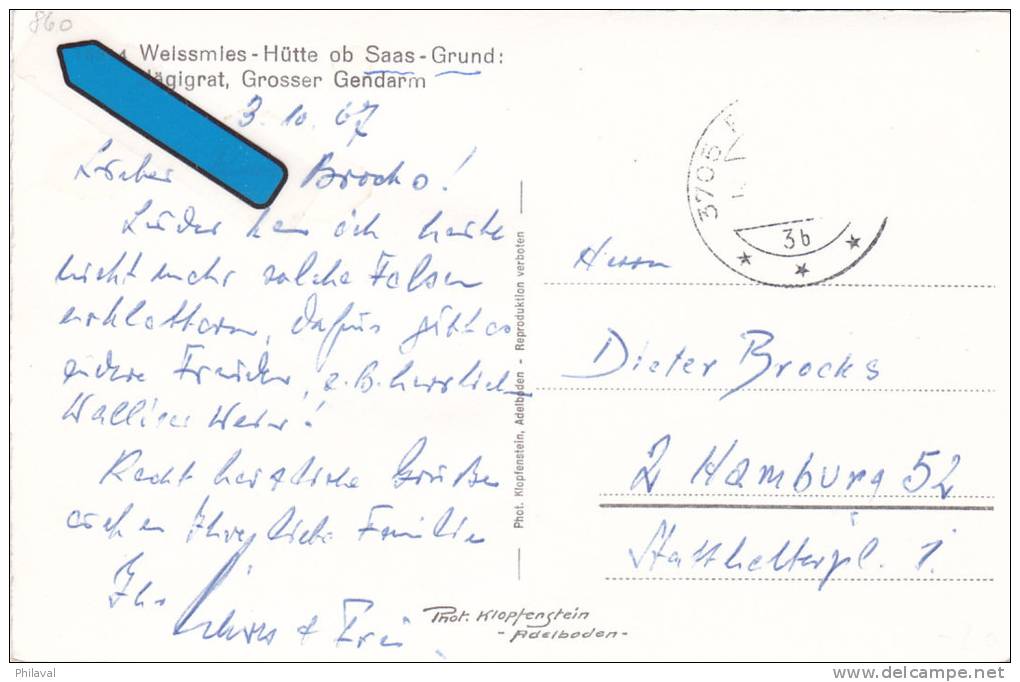 860
Weissmies-Hütte ob Saas-Grund:
Jägigrat, Grosser Gendarm
3. 10. 67
Lieber Brocks!
Leider kann ich heute
nicht mehr solche Felsen
erklettern, dafür gibt es
andere Freuden, z.B. herrlichen
Walliser Wein!
Recht herzliche Grüße
auch an Ihre liebe Familie
Ihr
+ Frau
Phot. Klopfenstein, Adelboden - Reproduktion verboten
3705
3b
Herrn
Dieter Brocks
2 Hamburg 52
Statthalterpl. 1.
Phot. Klopfenstein
- Adelboden -
Philaval
www.delcampe.net